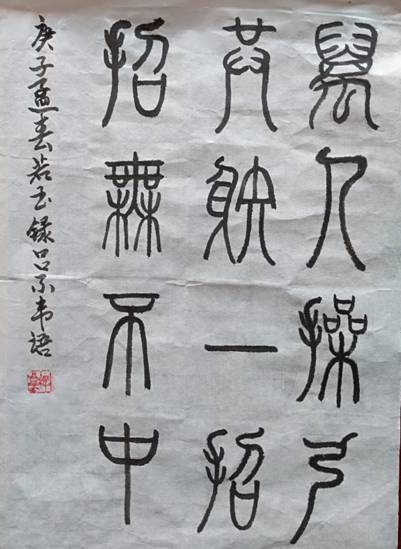 萬人操弓
共射一招
招無不中
庚子孟春若玉録呂不韦語